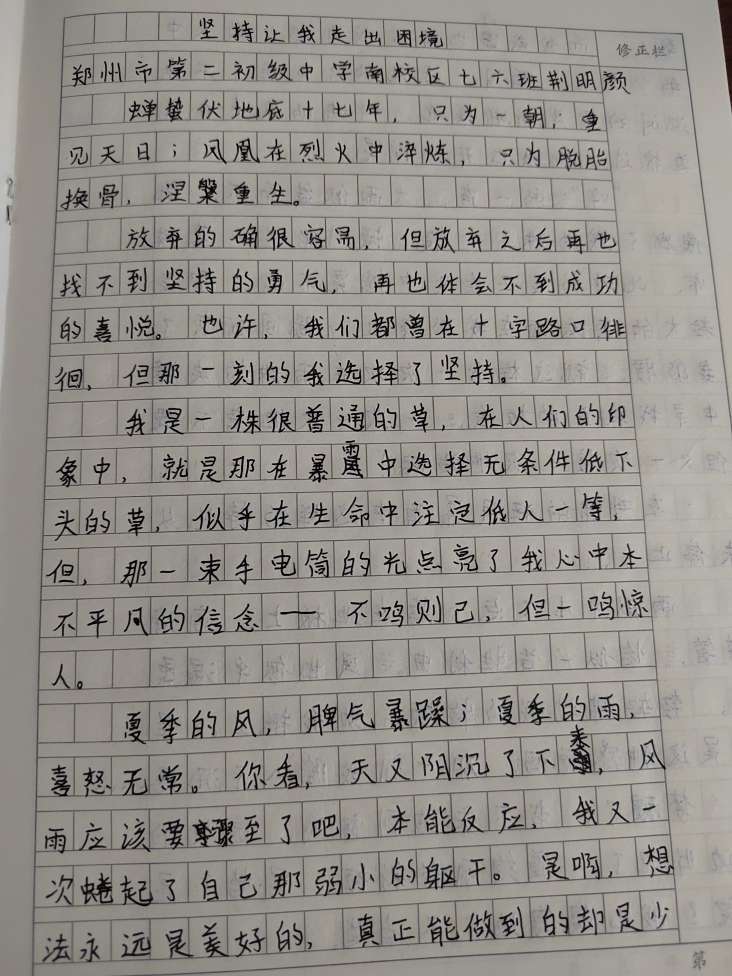 坚持让我走出困境
修正栏
郑州市第二初级中学南校区七六班荆明颜
蝉蛰伏地底十七年，只为一朝；重
见天日；凤凰在烈火中淬炼，只为脱胎
换骨，涅槃重生。
放弃的确很容易，但放弃之后再也
找不到坚持的勇气，再也体会不到成功
的喜悦。也许，我们都曾在十字路口徘
徊，但那一刻的我选择了坚持。
我是一株很普通的草，在人们的印
象中，就是那在暴露中选择无条件低下
头的草，似乎在生命中注定低人一等，
但，那一束手电筒的光点亮了我心中本
不平凡的信念——不鸣则已，但一鸣惊
人。
夏季的风，脾气暴躁；夏季的雨，
喜怒无常。你看，天又阴沉了下来，风
雨应该要骤至了吧，本能反应，我又一
次蜷起了自己那弱小的躯干。是啊，想
法永远是美好的，真正能做到的却是少
第